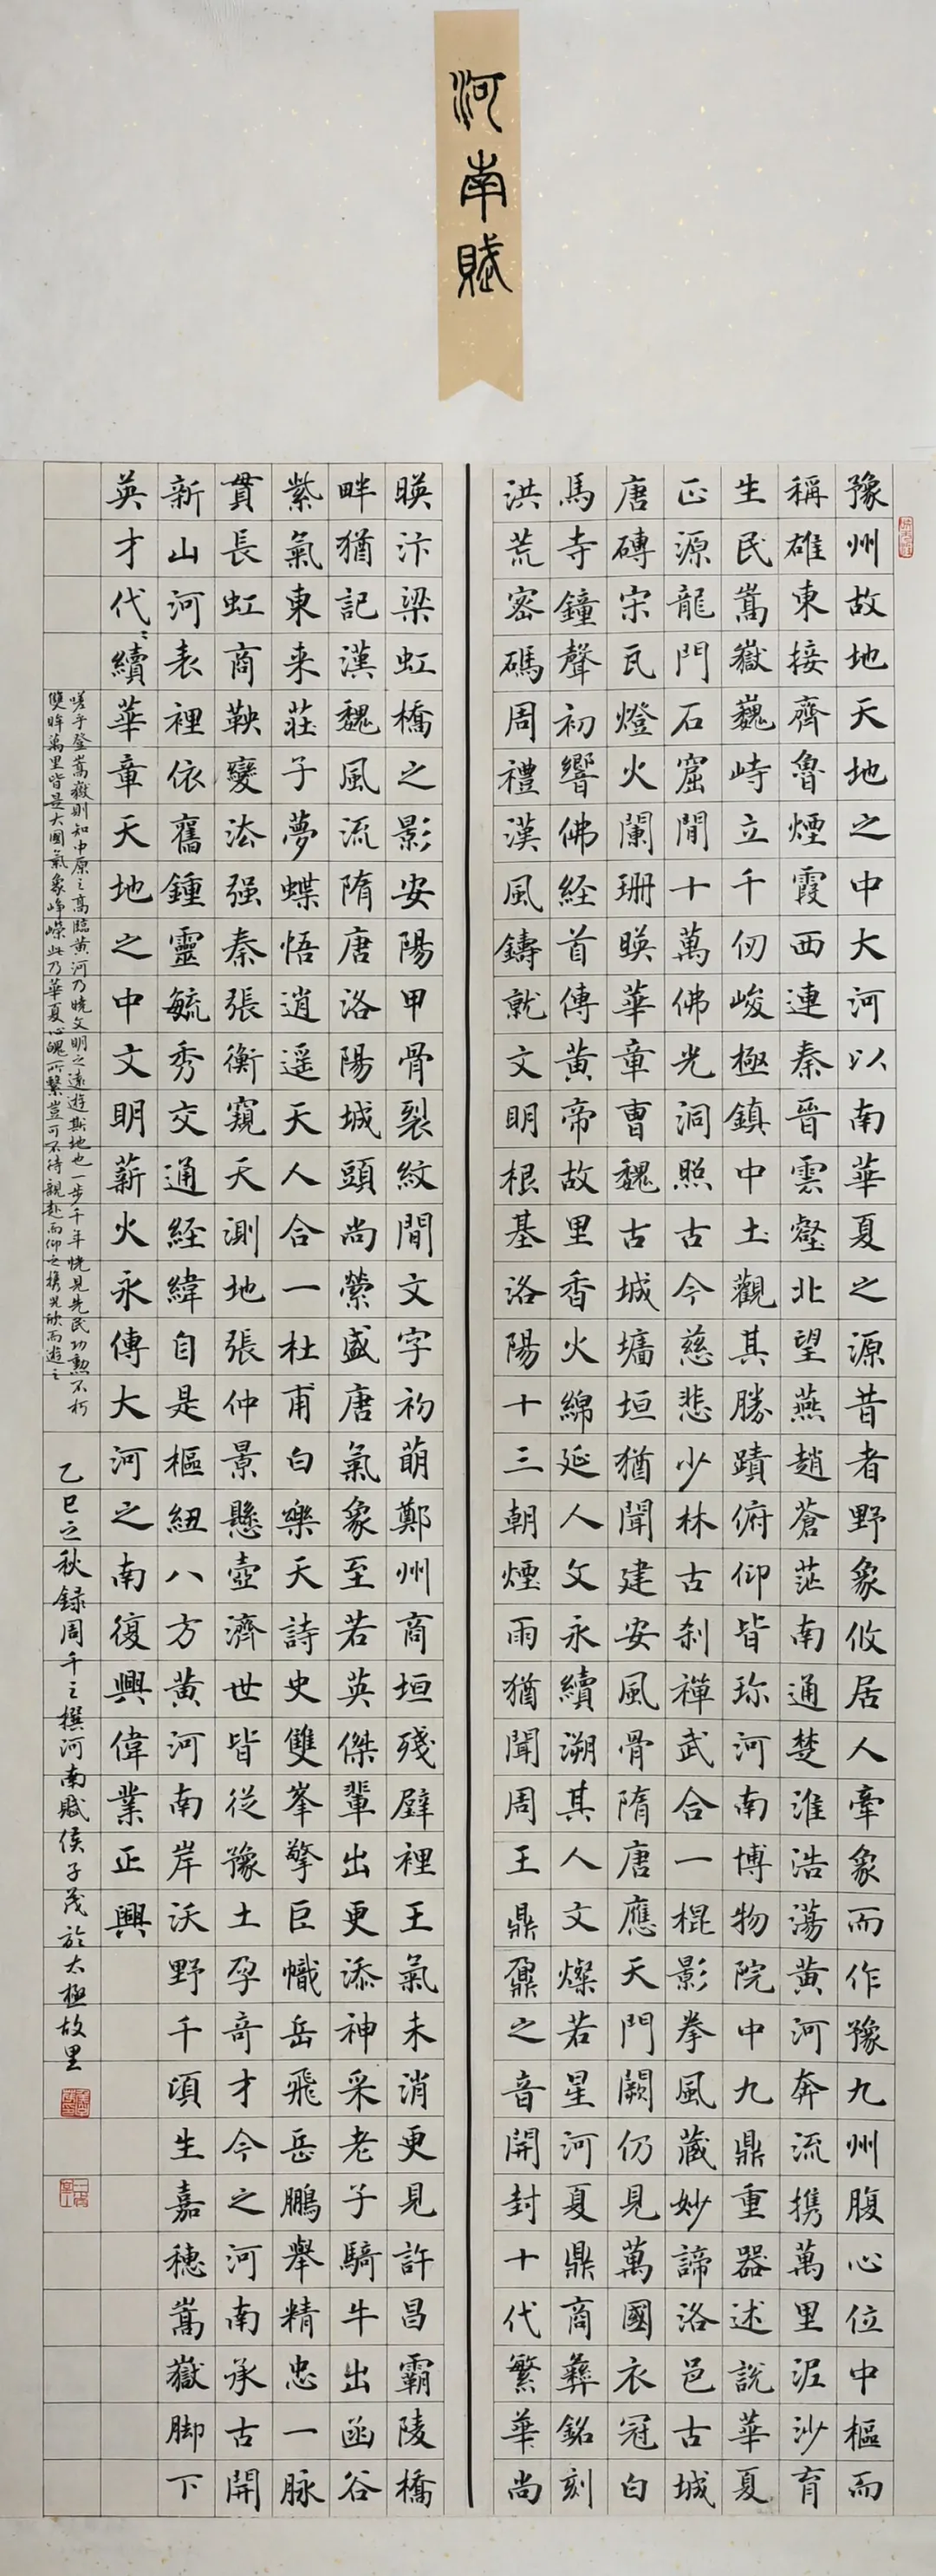 河南賦
豫州故地天地之中大河以南華夏之源昔者野象攸居人牽象而作豫九州腹心位中樞而
稱雄東接齊魯煙霞西連秦晉雲壑北望燕趙蒼茫南通楚淮浩蕩黃河奔流携萬里泥沙育
生民嵩嶽巍峙立千仞峻極鎮中土觀其勝蹟俯仰皆珍河南博物院中九鼎重器述說華夏
正源龍門石窟間十萬佛光洞照古今慈悲少林古刹禪武合一棍影拳風藏妙諦洛邑古城
唐磚宋瓦燈火闌珊暎華章曹魏古城墻垣猶聞建安風骨隋唐應天門闕仍見萬國衣冠白
馬寺鐘聲初響佛経首傳黃帝故里香火綿延人文永續溯其人文燦若星河夏鼎商彝銘刻
洪荒密碼周禮漢風鑄就文明根基洛陽十三朝煙雨猶聞周王鼎鼐之音開封十代繁華尚
暎汴梁虹橋之影安陽甲骨裂紋間文字初萌鄭州商垣殘壁裡王氣未消更見許昌霸陵橋
畔猶記漢魏風流隋唐洛陽城頭尚縈盛唐氣象至若英傑輩出更添神采老子騎牛出函谷
紫氣東来莊子夢蝶悟逍遥天人合一杜甫白樂天詩史雙峯擎巨幟岳飛岳鵬舉精忠一脉
貫長虹商鞅變法强秦張衡窺天測地張仲景懸壺濟世皆從豫土孕奇才今之河南承古開
新山河表裡依舊鍾靈毓秀交通經緯自是樞紐八方黃河南岸沃野千頃生嘉穗嵩嶽脚下
英才代〻續華章天地之中文明薪火永傳大河之南復興偉業正興
嗟乎登嵩嶽則知中原之高臨黃河乃曉文明之遠遊斯地也一步千年恍見先民功勲不朽
雙眸萬里皆是大國氣象崢嶸此乃華夏心魄所繫豈可不待親赴而仰之攜兒欣而遊之
乙巳之秋録周千之撰河南賦侯子茂於太極故里